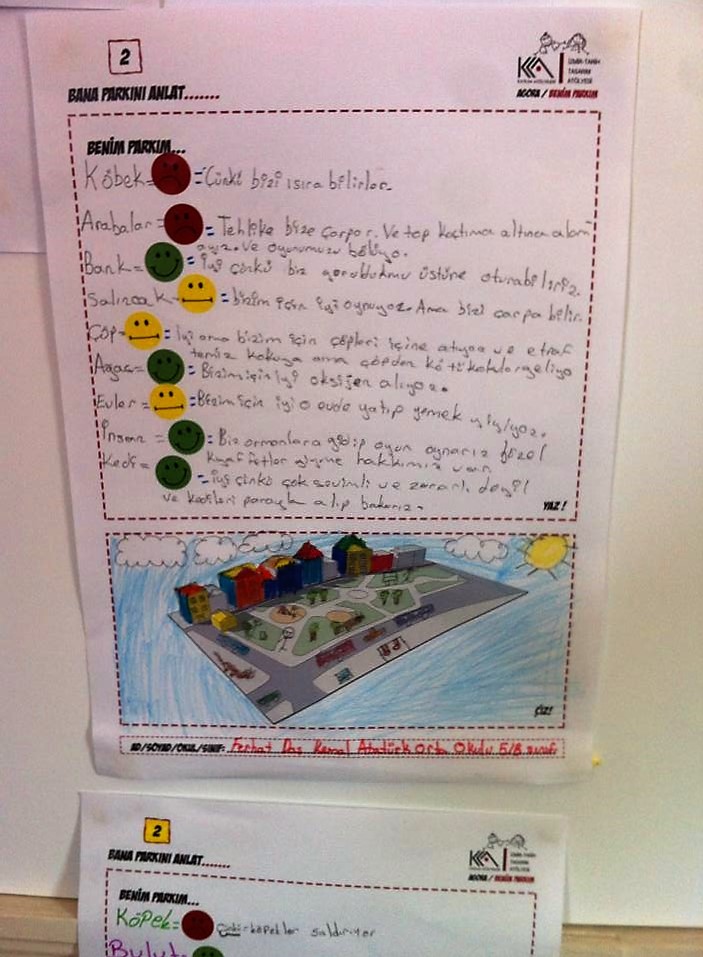 2
İZMİR-TARİH
TASARIM
ATÖLYESİ
BANA PARKINI ANLAT.......
AGORA / BENİM PARKIM
BENİM PARKIM...
Köbek= =Çünkü bizi ısıra bilirler.
Arabalar= = Tehlike bize çarpar. Ve top kaçtıma altına alam
ayız. Ve oyunumuzu bölüyo.
Bank= = iyi çünkü biz yorulduğumu üstüne oturabiliriz.
Salıncak= = bizim için iyi oynuyoz. Ama bizi çarpa bilir.
Çöp= = İyi ama bizim için çöpleri içine atıyoz ve etraf
temiz kokuyo ama çöpden kötü kokular geliyo
Ağaç= = Bizim için iyi oksijen alıyoz.
Evler= =Bizim için iyi o evde yatıp yemek yiyoz.
İnsan = = Biz ormanlara gidip oyun oynarız güzel
kıyafetler giyme hakkımız var.
Kedi= = iyi çünkü çok sevimli ve zararlı değil
ve kedileri parayla alıp bakarız.
YAZ!
ÇİZ!
AD/SOYAD/OKUL/SINIF: Ferhat Daş Kemal Atatürk Orta Okulu 5/B sınıfı
2
İZMİR-TARİH
TASARIM
ATÖLYESİ
BANA PARKINI ANLAT.......
AGORA / BENİM PARKIM
BENİM PARKIM...
Köpek= köpekler saldırıyor
Bulut